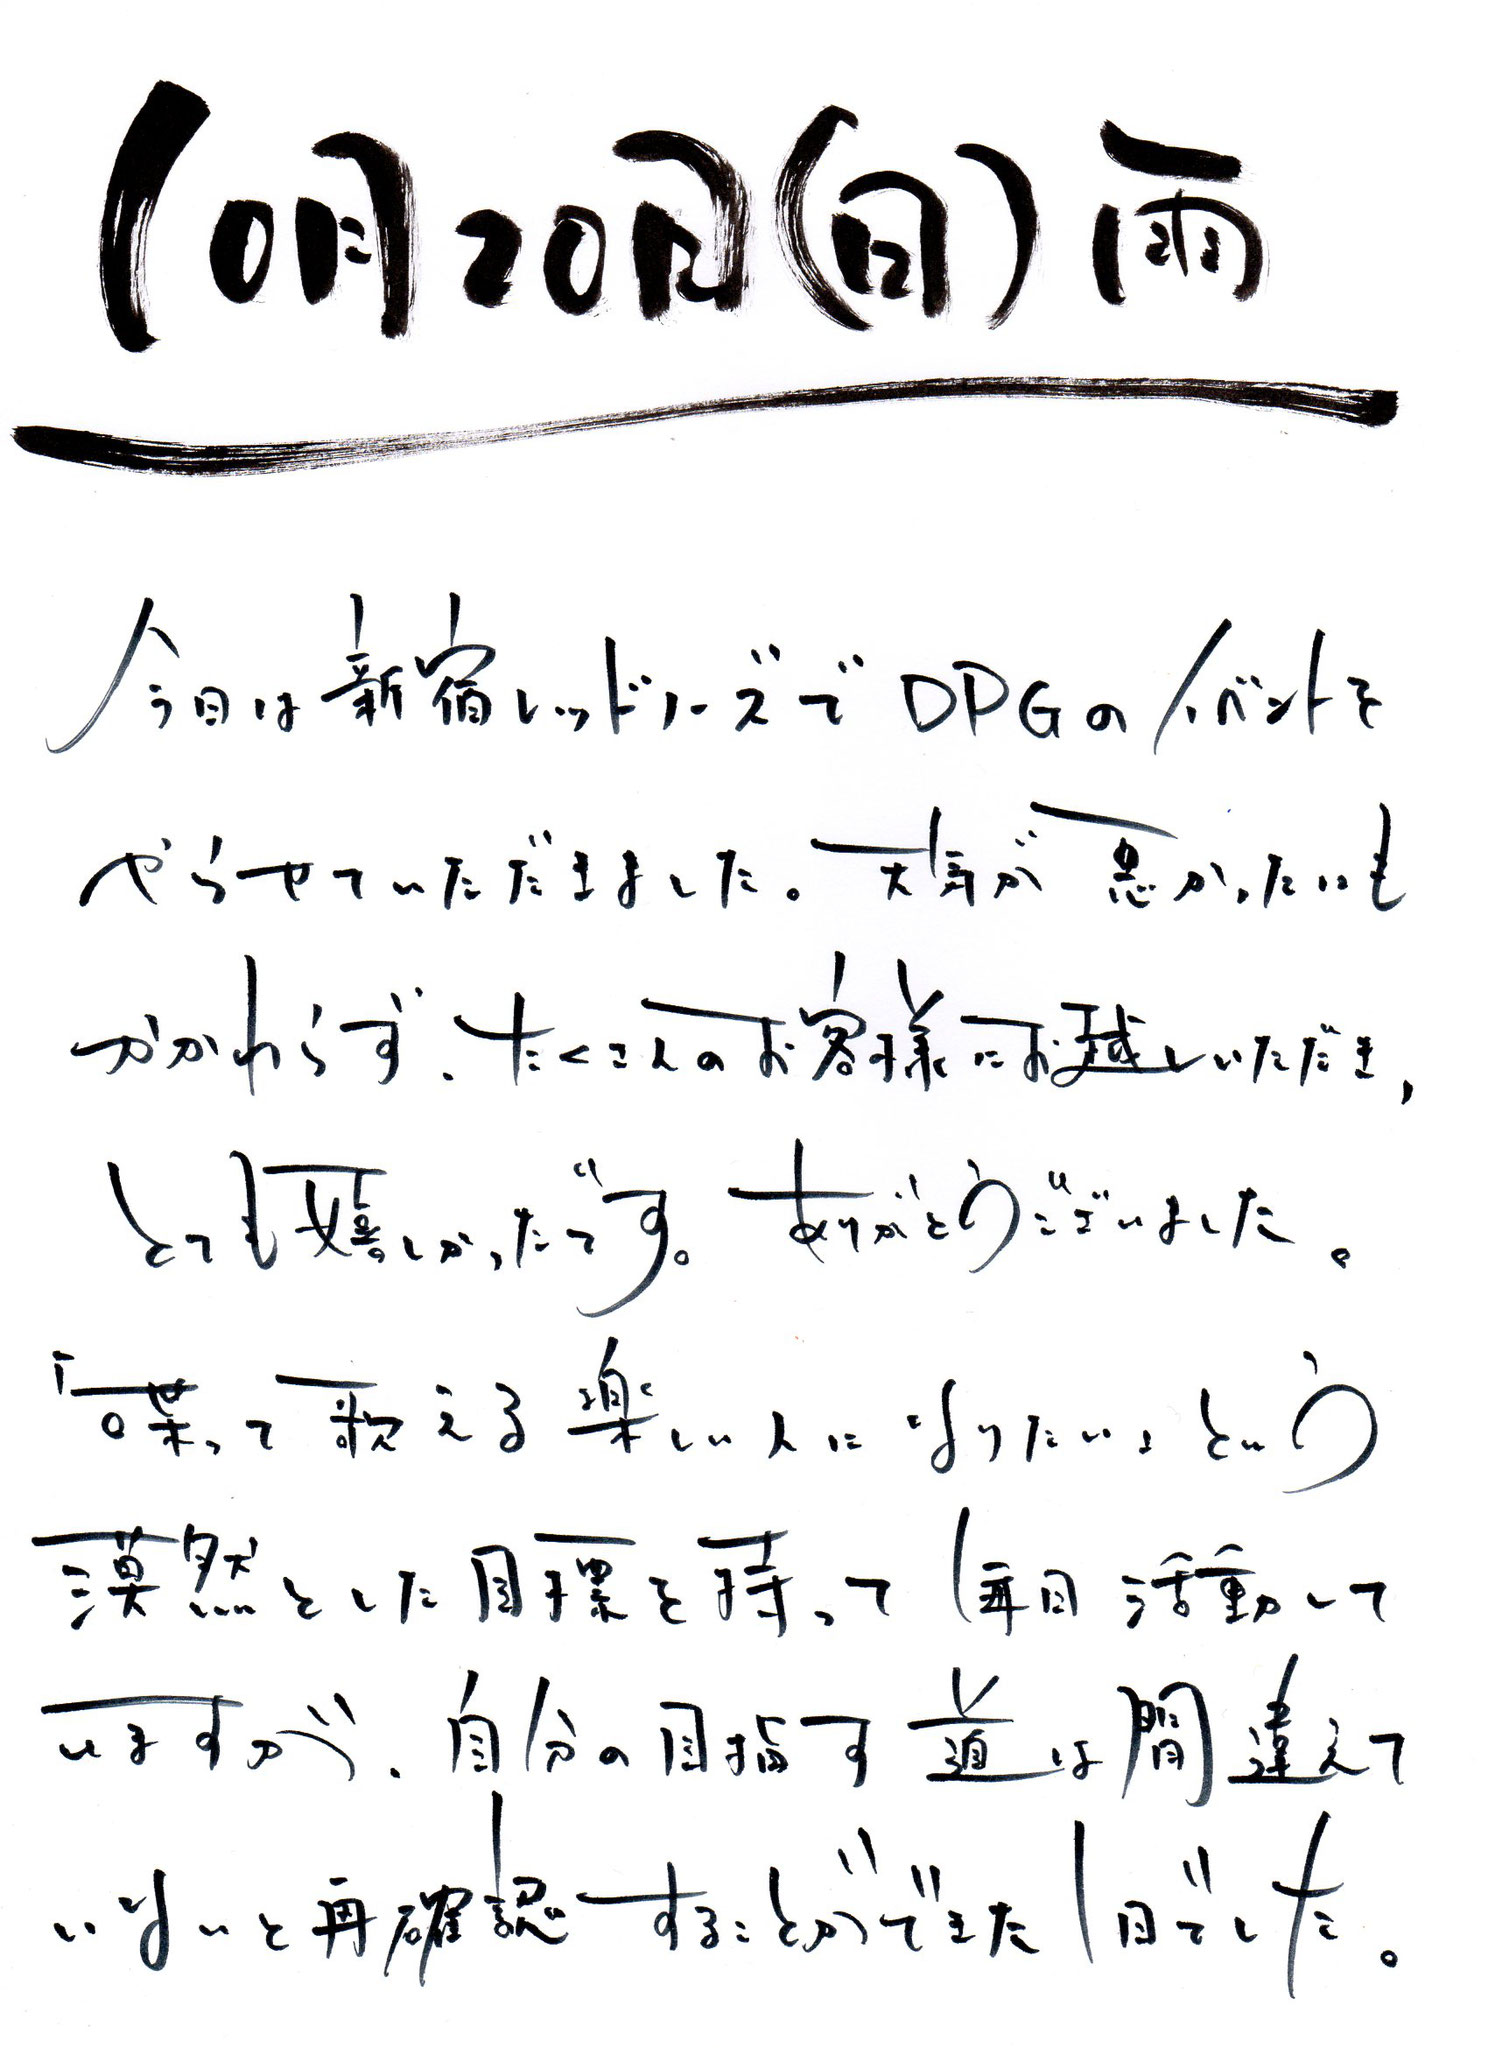 10月20日(日)雨
今日は新宿レッドノーズでDPGのイベントを
やらせていただきました。天気が悪かったにも
かかわらず、たくさんのお客様にお越しいただき、
とても嬉しかったです。ありがとうございました。
「言葉って歌える楽しい人になりたい」という
漠然とした目標を持って毎日活動して
いますが、自分の目指す道は間違えて
いないと再確認することができた1日でした。